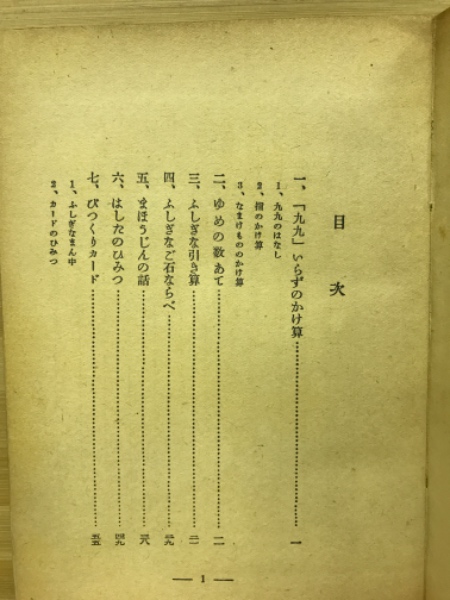 目次
一、「九九」いらずのかけ算……………一
1、九九のはなし
2、指のかけ算
3、なまけもののかけ算
二、ゆめの数あて……………一一
三、ふしぎな引き算……………二一
四、ふしぎなご石ならべ……………二九
五、まほうじんの話……………三八
六、はしたのひみつ……………四九
七、びつくりカード……………五五
1、ふしぎなまん中
2、カードのひみつ
— 1 —